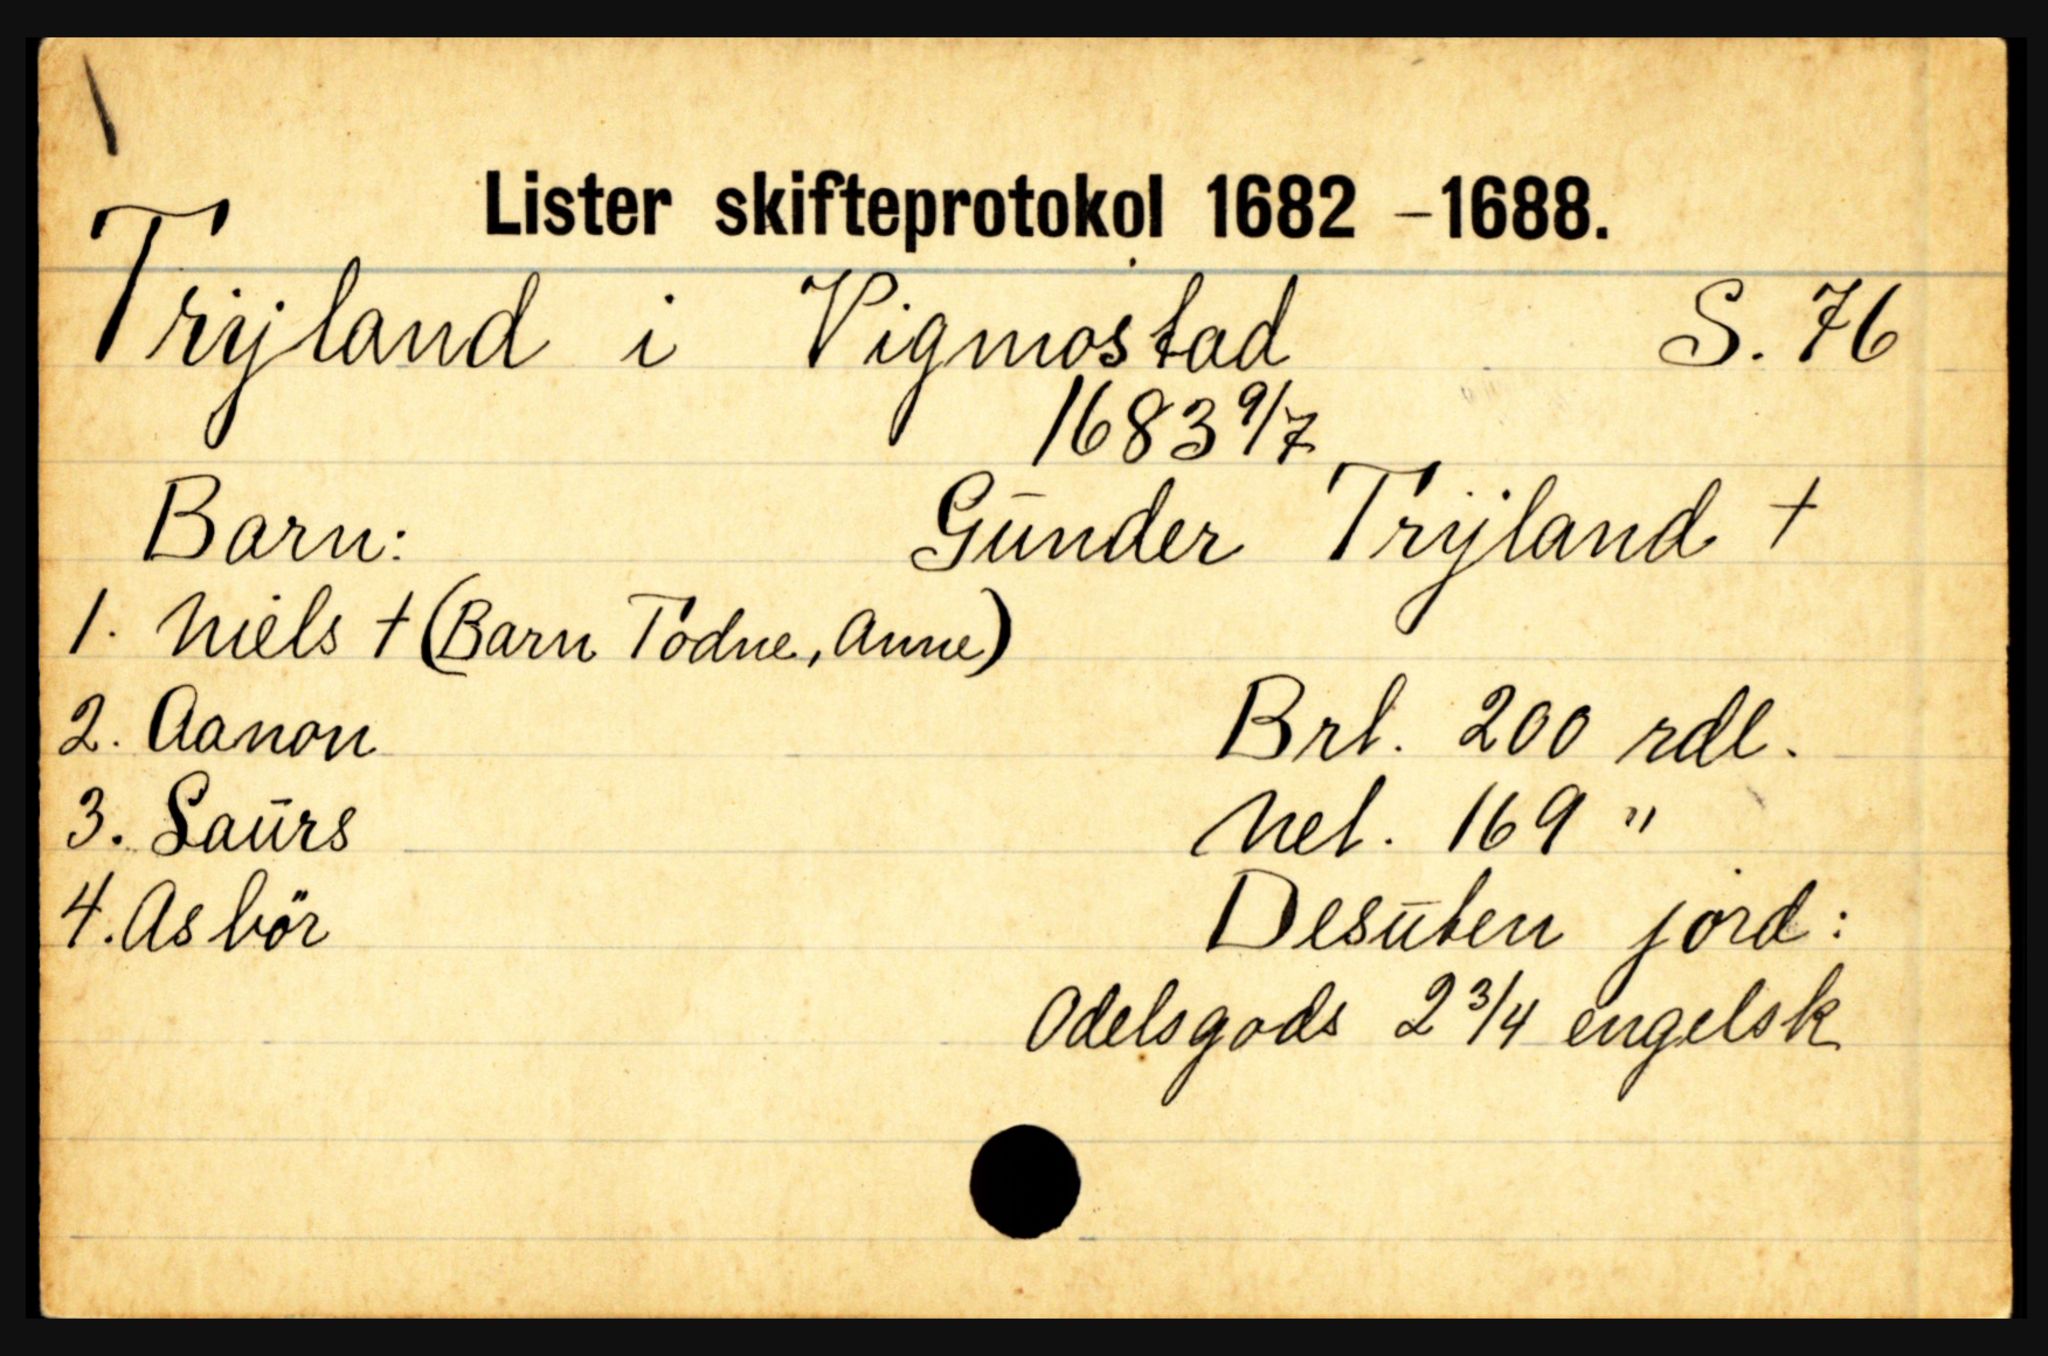 Lister skifteprotokol 1682 - 1688.
Trijland i Vigmostad S. 76
1683 9/7
Barn: Gunder Trijland +
1. Niels + (Barn Todne, Anne)
2. Aanon Brl. 200 rdl.
3. Laurs Nel. 169 "
4. Asbör Desuten jord:
Odelsgods 2 3/4 engelsk